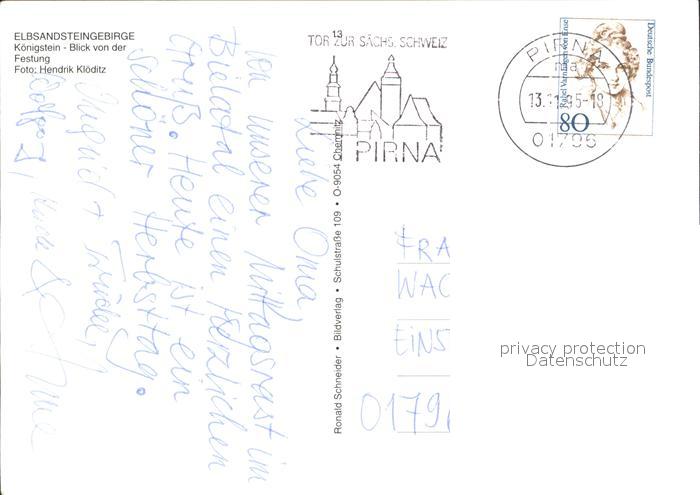 ELBSANDSTEINGEBIRGE
Königstein - Blick von der
Festung
Foto: Hendrik Klöditz
Liebe Oma,
von unserer Mittagsrast im
Bielatal einen herzlichen
Gruß. Heute ist ein
schöner Herbsttag.
Ingrid + Friedel,
Wolfgang,
Ronald Schneider • Bildverlag • Schulstraße 109 • O-9054 Chemnitz
13
TOR ZUR SÄCHS. SCHWEIZ
PIRNA
PIRNA
ma
13.11.95-18
01796
Deutsche Bundespost
Rahel Varnhagen von Ense
80
FRA
WAC
EINS
0179
privacy protection
Datenschutz